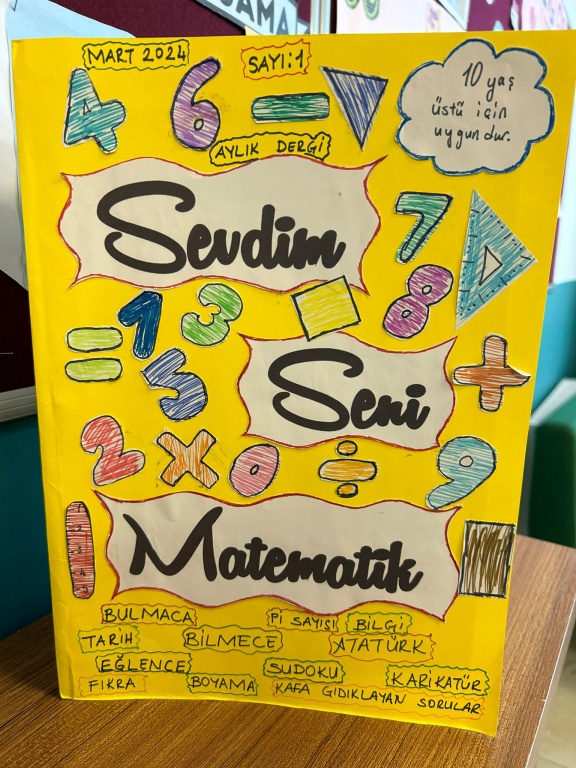 AMA
MART 2024
SAYI:1
10 yaş
üstü için
uygundur.
4 6 -
AYLIK DERGİ
Sevdim
7
= 1 3 8
5
Seni
+
2 x 0 ÷ 9
Matematik
BULMACA PI SAYISI BİLGİ
TARİH BİLMECE ATATÜRK
EĞLENCE SUDOKU KARİKATÜR
FIKRA BOYAMA KAFA GIDIKLAYAN SORULAR